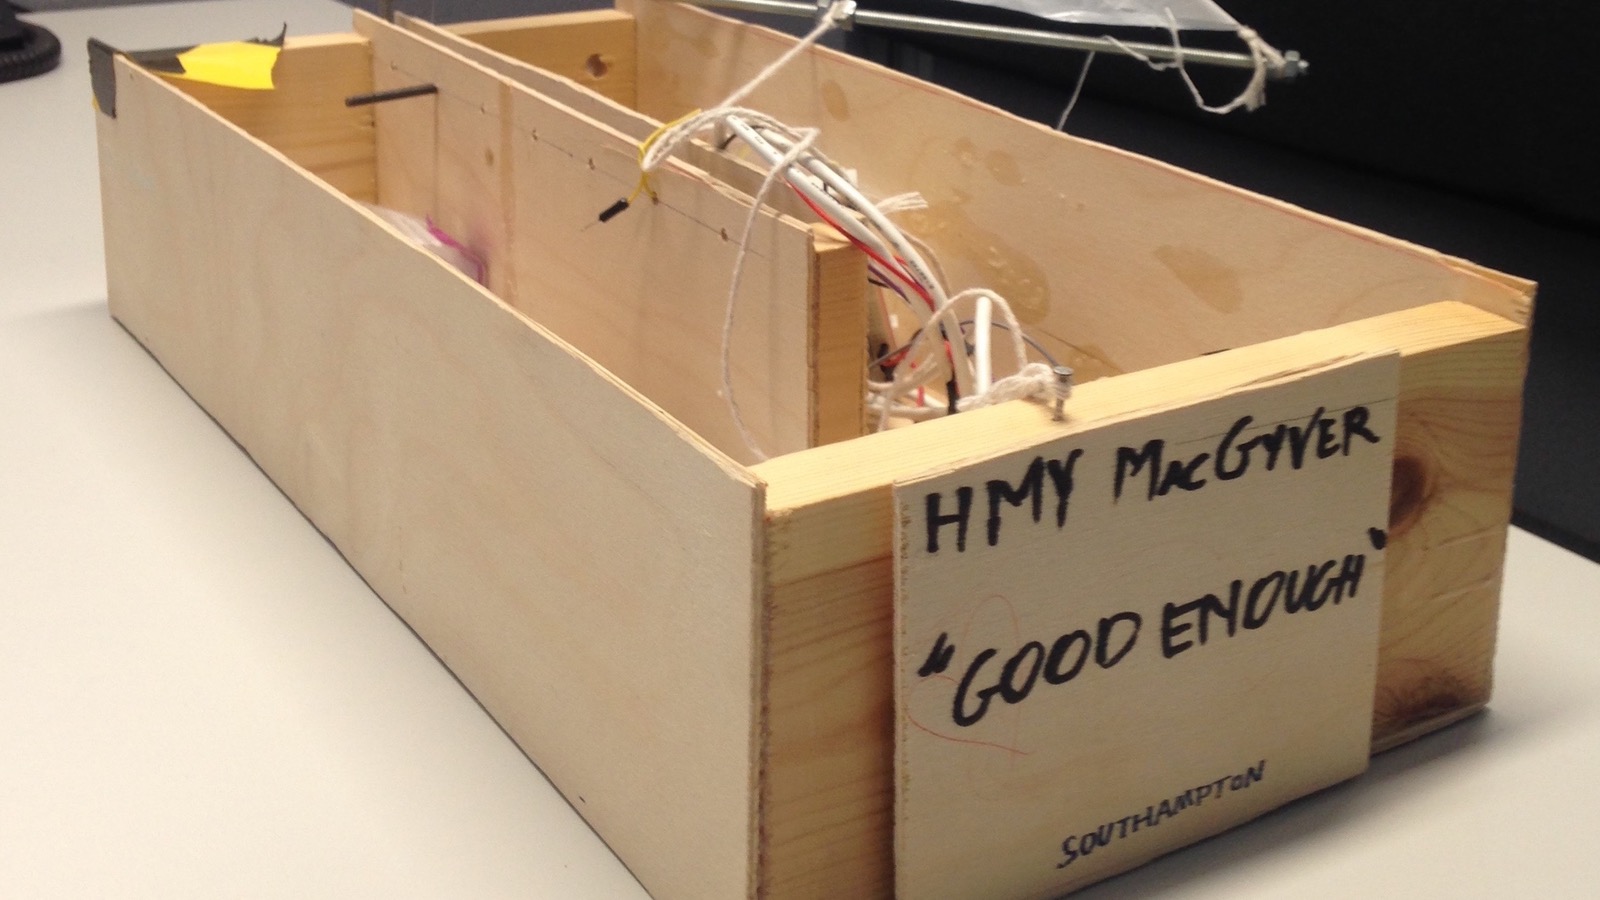 HMY MACGYVER
"GOOD ENOUGH"
SOUTHAMPTON